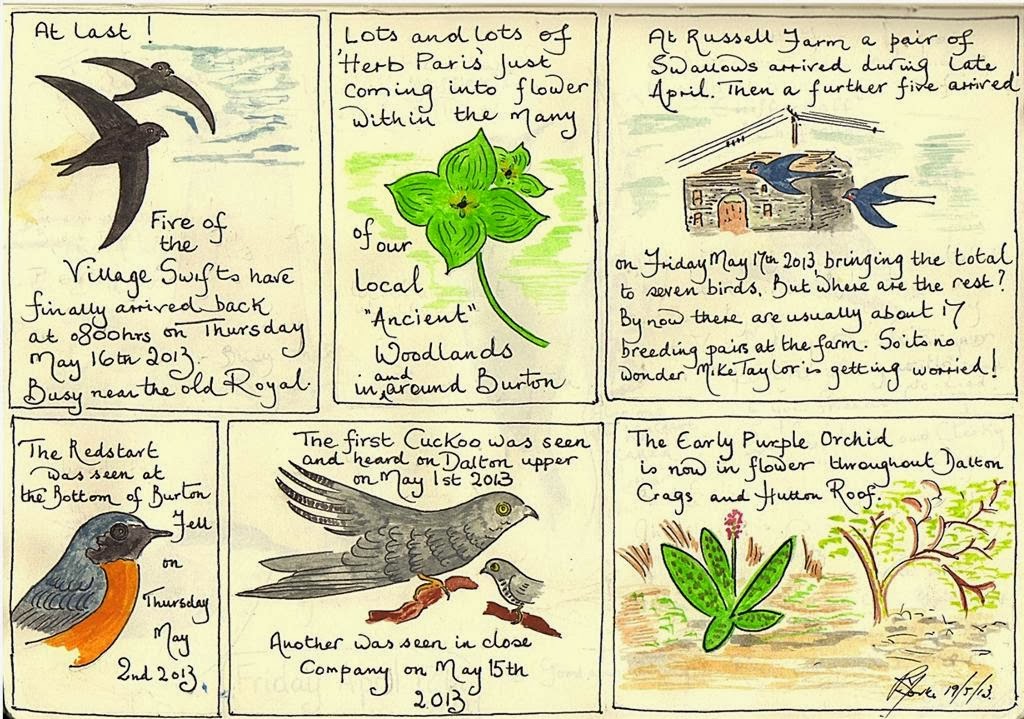 At Last !
Five of
the
Village Swifts have
finally arrived back
at 0800hrs on Thursday
May 16th 2013.
Busy near the old Royal.
Lots and lots of
'Herb Paris' Just
coming into flower
within the many
of our
Local
"Ancient"
Woodlands
in and around Burton
At Russell Farm a pair of
Swallows arrived during late
April. Then a further five arrived
on Friday May 17th 2013, bringing the total
to seven birds. But where are the rest?
By now there are usually about 17
breeding pairs at the farm. So its no
wonder Mike Taylor is getting worried!
The Redstart
was seen at
the Bottom of Burton
Fell
on
Thursday
May
2nd 2013.
The first Cuckoo was seen
and heard on Dalton upper
on May 1st 2013
Another was seen in close
Company on May 15th
2013
The Early Purple Orchid
is now in flower throughout Dalton
Crags and Hutton Roof.
19/5/13.